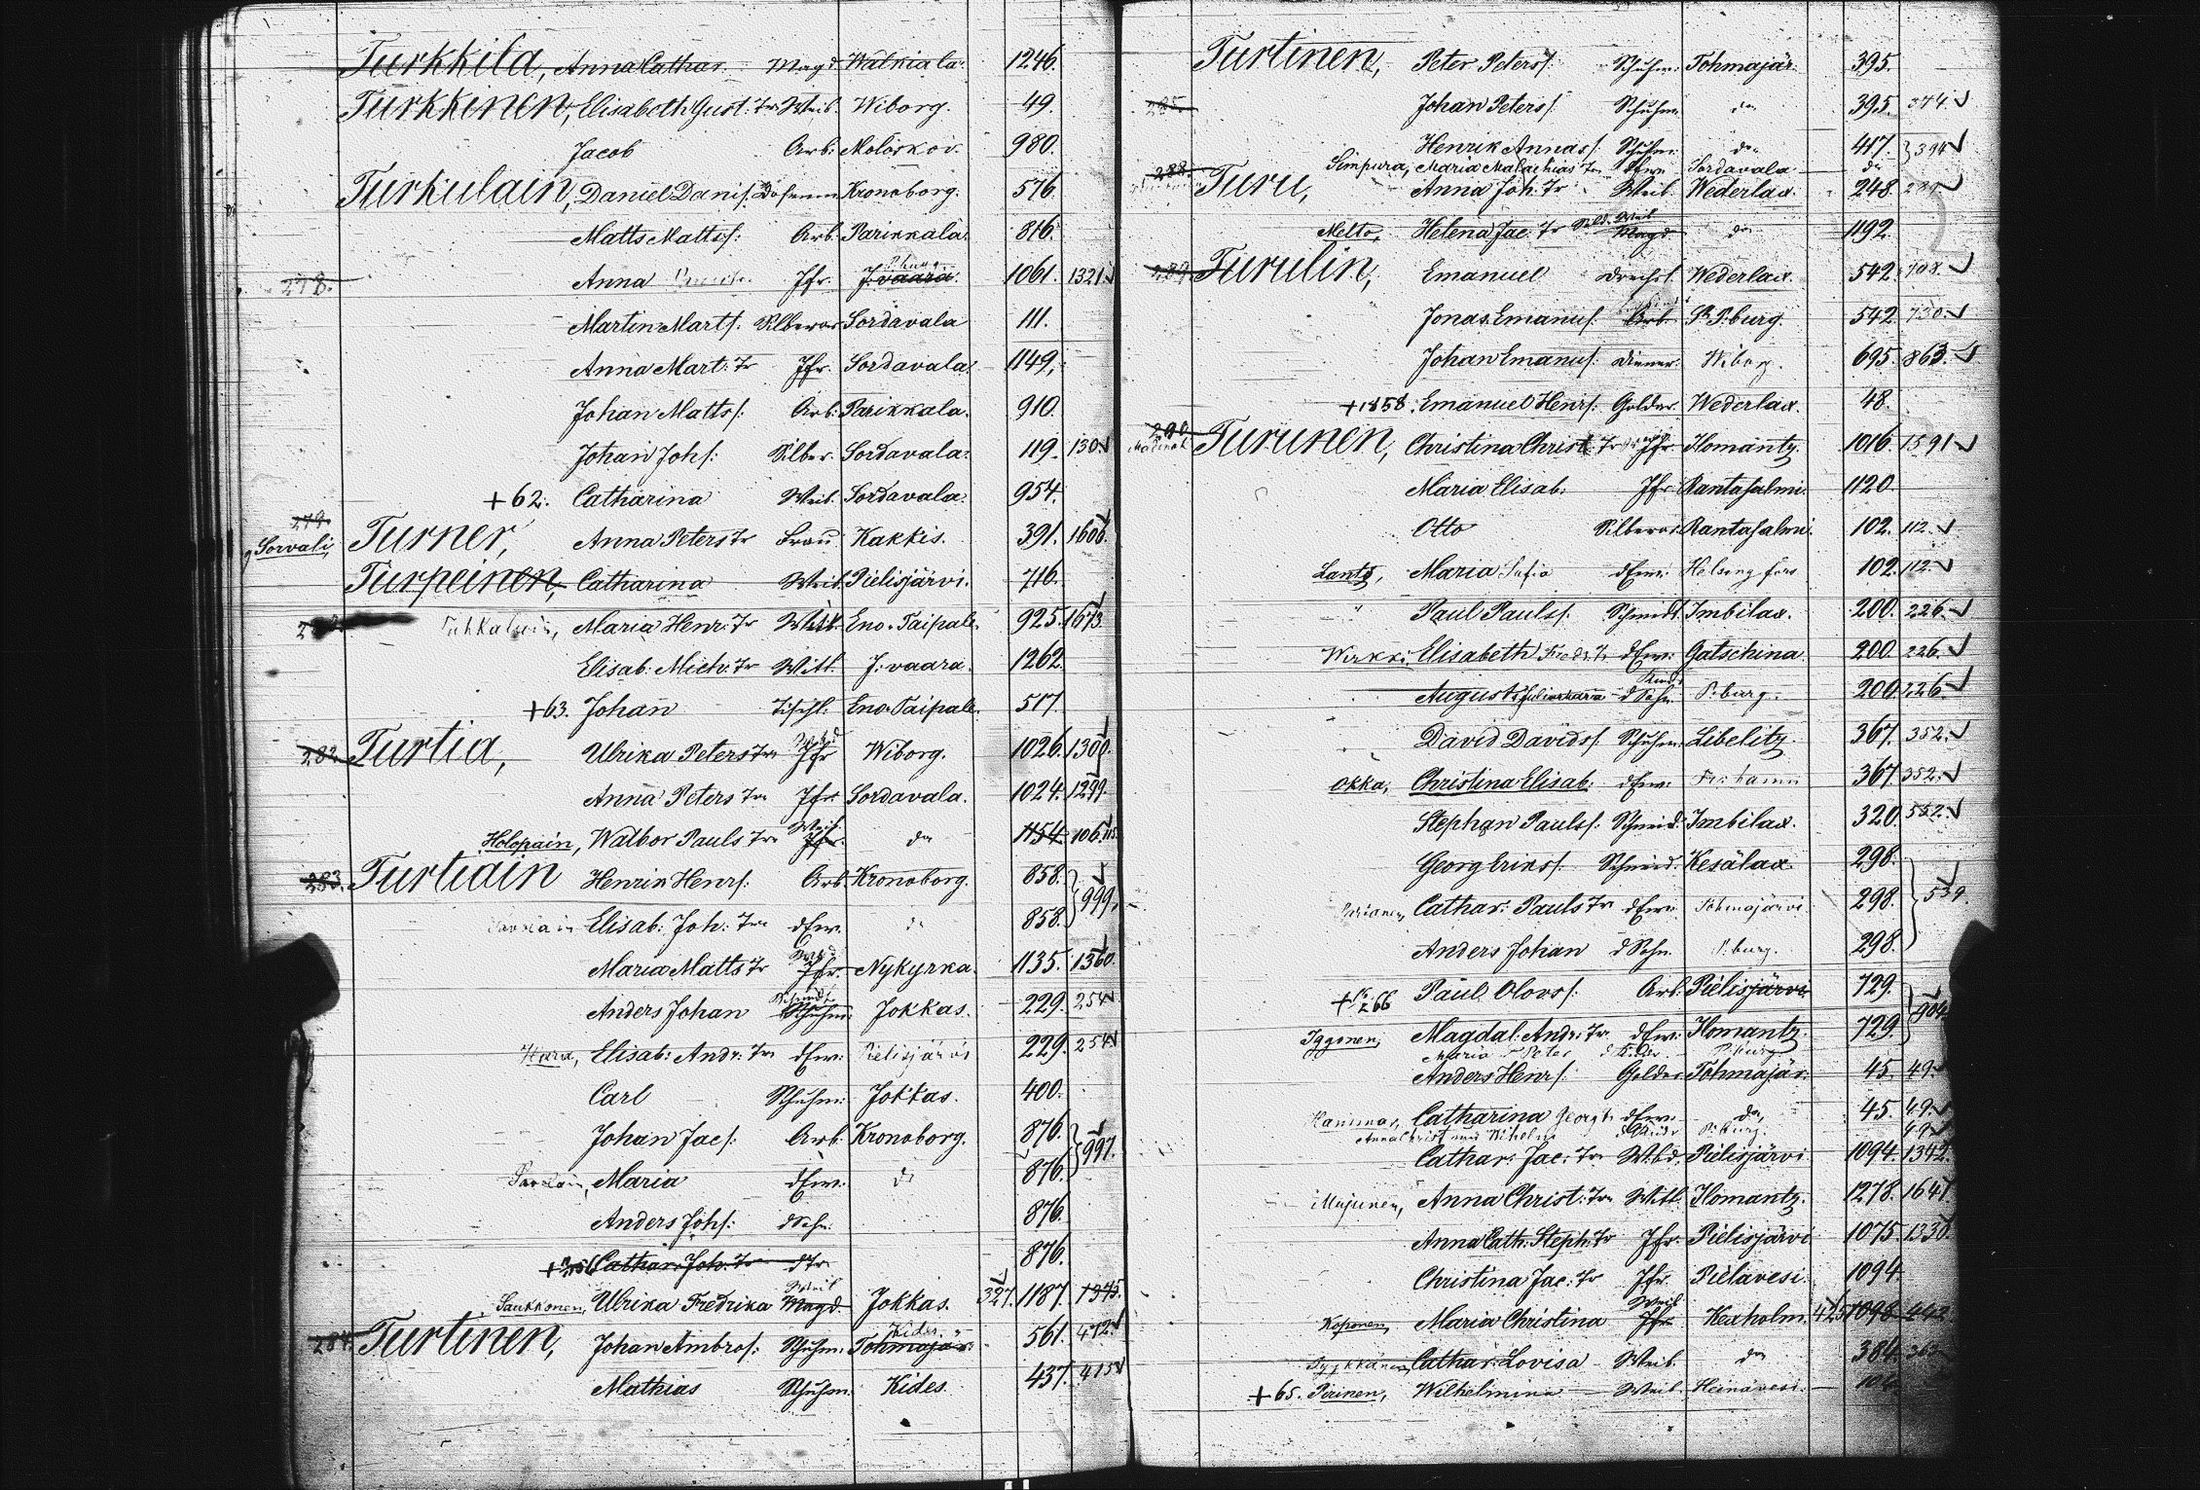 Turkkila, Anna Cathar. Magd Walkiala. 1246.
Turkkinen, Elisabeth Gust: Tr Weib. Wiborg. 49.
Jacob Arb: Moloskov. 980.
Turkulain, Daniel Danis. Kronoborg. 576.
Matts Mattss: Arb. Parikkala. 816.
278. Anna Jfr. J: vaara. 1061. 1321
Martin Marts. Silberar Sordavala 111.
Anna Mart: Tr Jfr. Sordavala. 1149.
Johan Matts: Arb: Parikkala. 910.
Johan Johs: Silber. Sordavala. 119. 130
+62. Catharina Weib. Sordavala. 954.
279.
Sorvali, Turner, Anna Peters Tr Frau Kakkis. 391. 1606.
Turpeinen, Catharina Weib. Pielisjärvi. 716.
Maria Henr: Tr Eno-Taipale. 925. 1673.
Elisab. Mich: Tr Witt. J: vaara. 1262.
+63. Johan Tischl. Eno-Taipale. 517.
282. Turtia, Ulrika Peters Tr Jfr Wiborg. 1026. 1300.
Anna Peters Tr Jfr. Sordavala. 1024. 1299.
Weib
Holopain, Walbor Pauls Tr Jfr. do 1154.
283. Turtiain Henrik Henrs: Arb. Kronoborg. 858.
999.
Elisab: Joh: Tr dEw. do 858.
Maria Matts Tr Jfr. Nykyrka. 1135. 1360.
Anders Johan Schuhm. Jokkas. 229. 254
Elisab: Andr: Tr dEw: Pielisjärvi 229. 254
Carl Schuhm: Jokkas. 400.
Johan Jacs: Arb: Kronoborg. 876.
997.
Maria dEw: do 876.
Anders Johs: dSohn. 876.
Cathar: Joh: Tr dTr 876.
Weib
Saukkonen, Ulrika Fredrika Magd Jokkas. 327. 1187. 1345.
Kides.
284. Turtinen, Johan Ambros: Schuhm. Tohmajär. 561. 472.
Mathias Schuhm. Kides. 437. 415
Turtinen, Peter Peterss. Schuhm: Tohmajär. 395.
285. Johan Peterss. Schuhm do 395. 374
Henrik Annas. Schuhm do 417. 394
Simpura, Maria Malachias Tr dEw Sordavala do
288. Turu, Anna Joh: Tr Weib. Wederlax. 248.
Weib
Melto, Helena Jac: Tr Magd do 1192
289. Turulin, Emanuel Drechsl. Wederlax. 542. 708.
Jonas Emanus. Arb. St P:burg. 542. 730.
Johan Emanus: Diener. Wiborg. 695. 863.
+1858. Emanuel Henrs: Golder. Wederlax. 48.
290. Turunen, Christina Christ: Tr Jfr. Ilomantz. 1016. 1591
Maria Elisab: Jfr. Rantasalmi. 1120.
Otto Silberar. Rantasalmi. 102. 112.
Lantz, Maria Sofia dEw: Helsingfors 102. 112.
Paul Paulss. Schmidt Imbilax. 200. 226.
Elisabeth Fredr. Tr dEw: Gatschina 200. 226.
August dSohn. P:burg. 200. 226.
David Davids. Schuhm. Libelitz. 367. 352.
Okka, Christina Elisab: dEw: 367. 352.
Stephan Paulss: Schmid. Imbilax. 320. 552.
Georg Eriks. Schmid. Kesälax. 298.
Cathar: Pauls Tr dEw: Tohmajärvi. 298. 539.
Anders Johan dSohn. P:burg. 298.
+ 66 Paul Olovss. Arb. Pielisjärvi 729.
904.
Iggonen, Magdal: Andr: Tr dEw: Ilomantz. 729.
Maria Peter P:burg
Anders Henrs. Golder. Tohmajär. 45. 49.
Catharina Georg Tr dEw: do 45. 49.
P:burg. 49.
Cathar: Jac: Tr Pielisjärvi 1094. 1342.
Mujunen, Anna Christ: Tr Witt. Ilomantz. 1278. 1647.
Anna Cath: Steph: Tr Jfr. Pielisjärvi 1075. 1338.
Christina Jac: Tr Jfr. Pielavesi 1094.
Weib
Koponen, Maria Christina Jfr Kexholm. 425. 1098. 442.
Cathar: Lovisa Weib. do 384. 363.
+65. Pirinen, Wilhelmina Weib. Heinävesi.